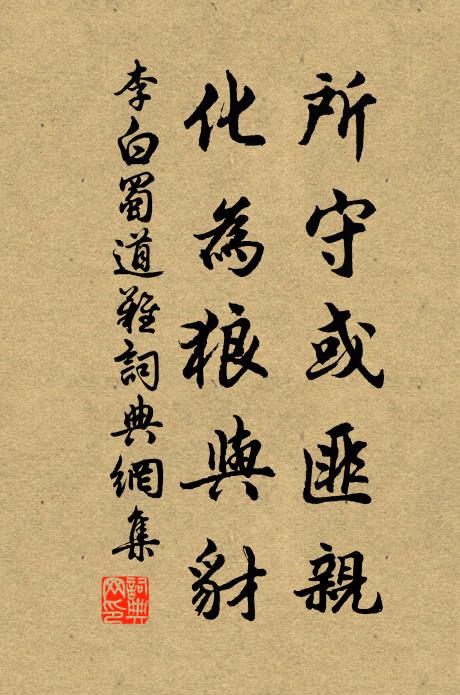 所守或匪親
化為狼與豺
李白蜀道難詞典網集
詞典网印